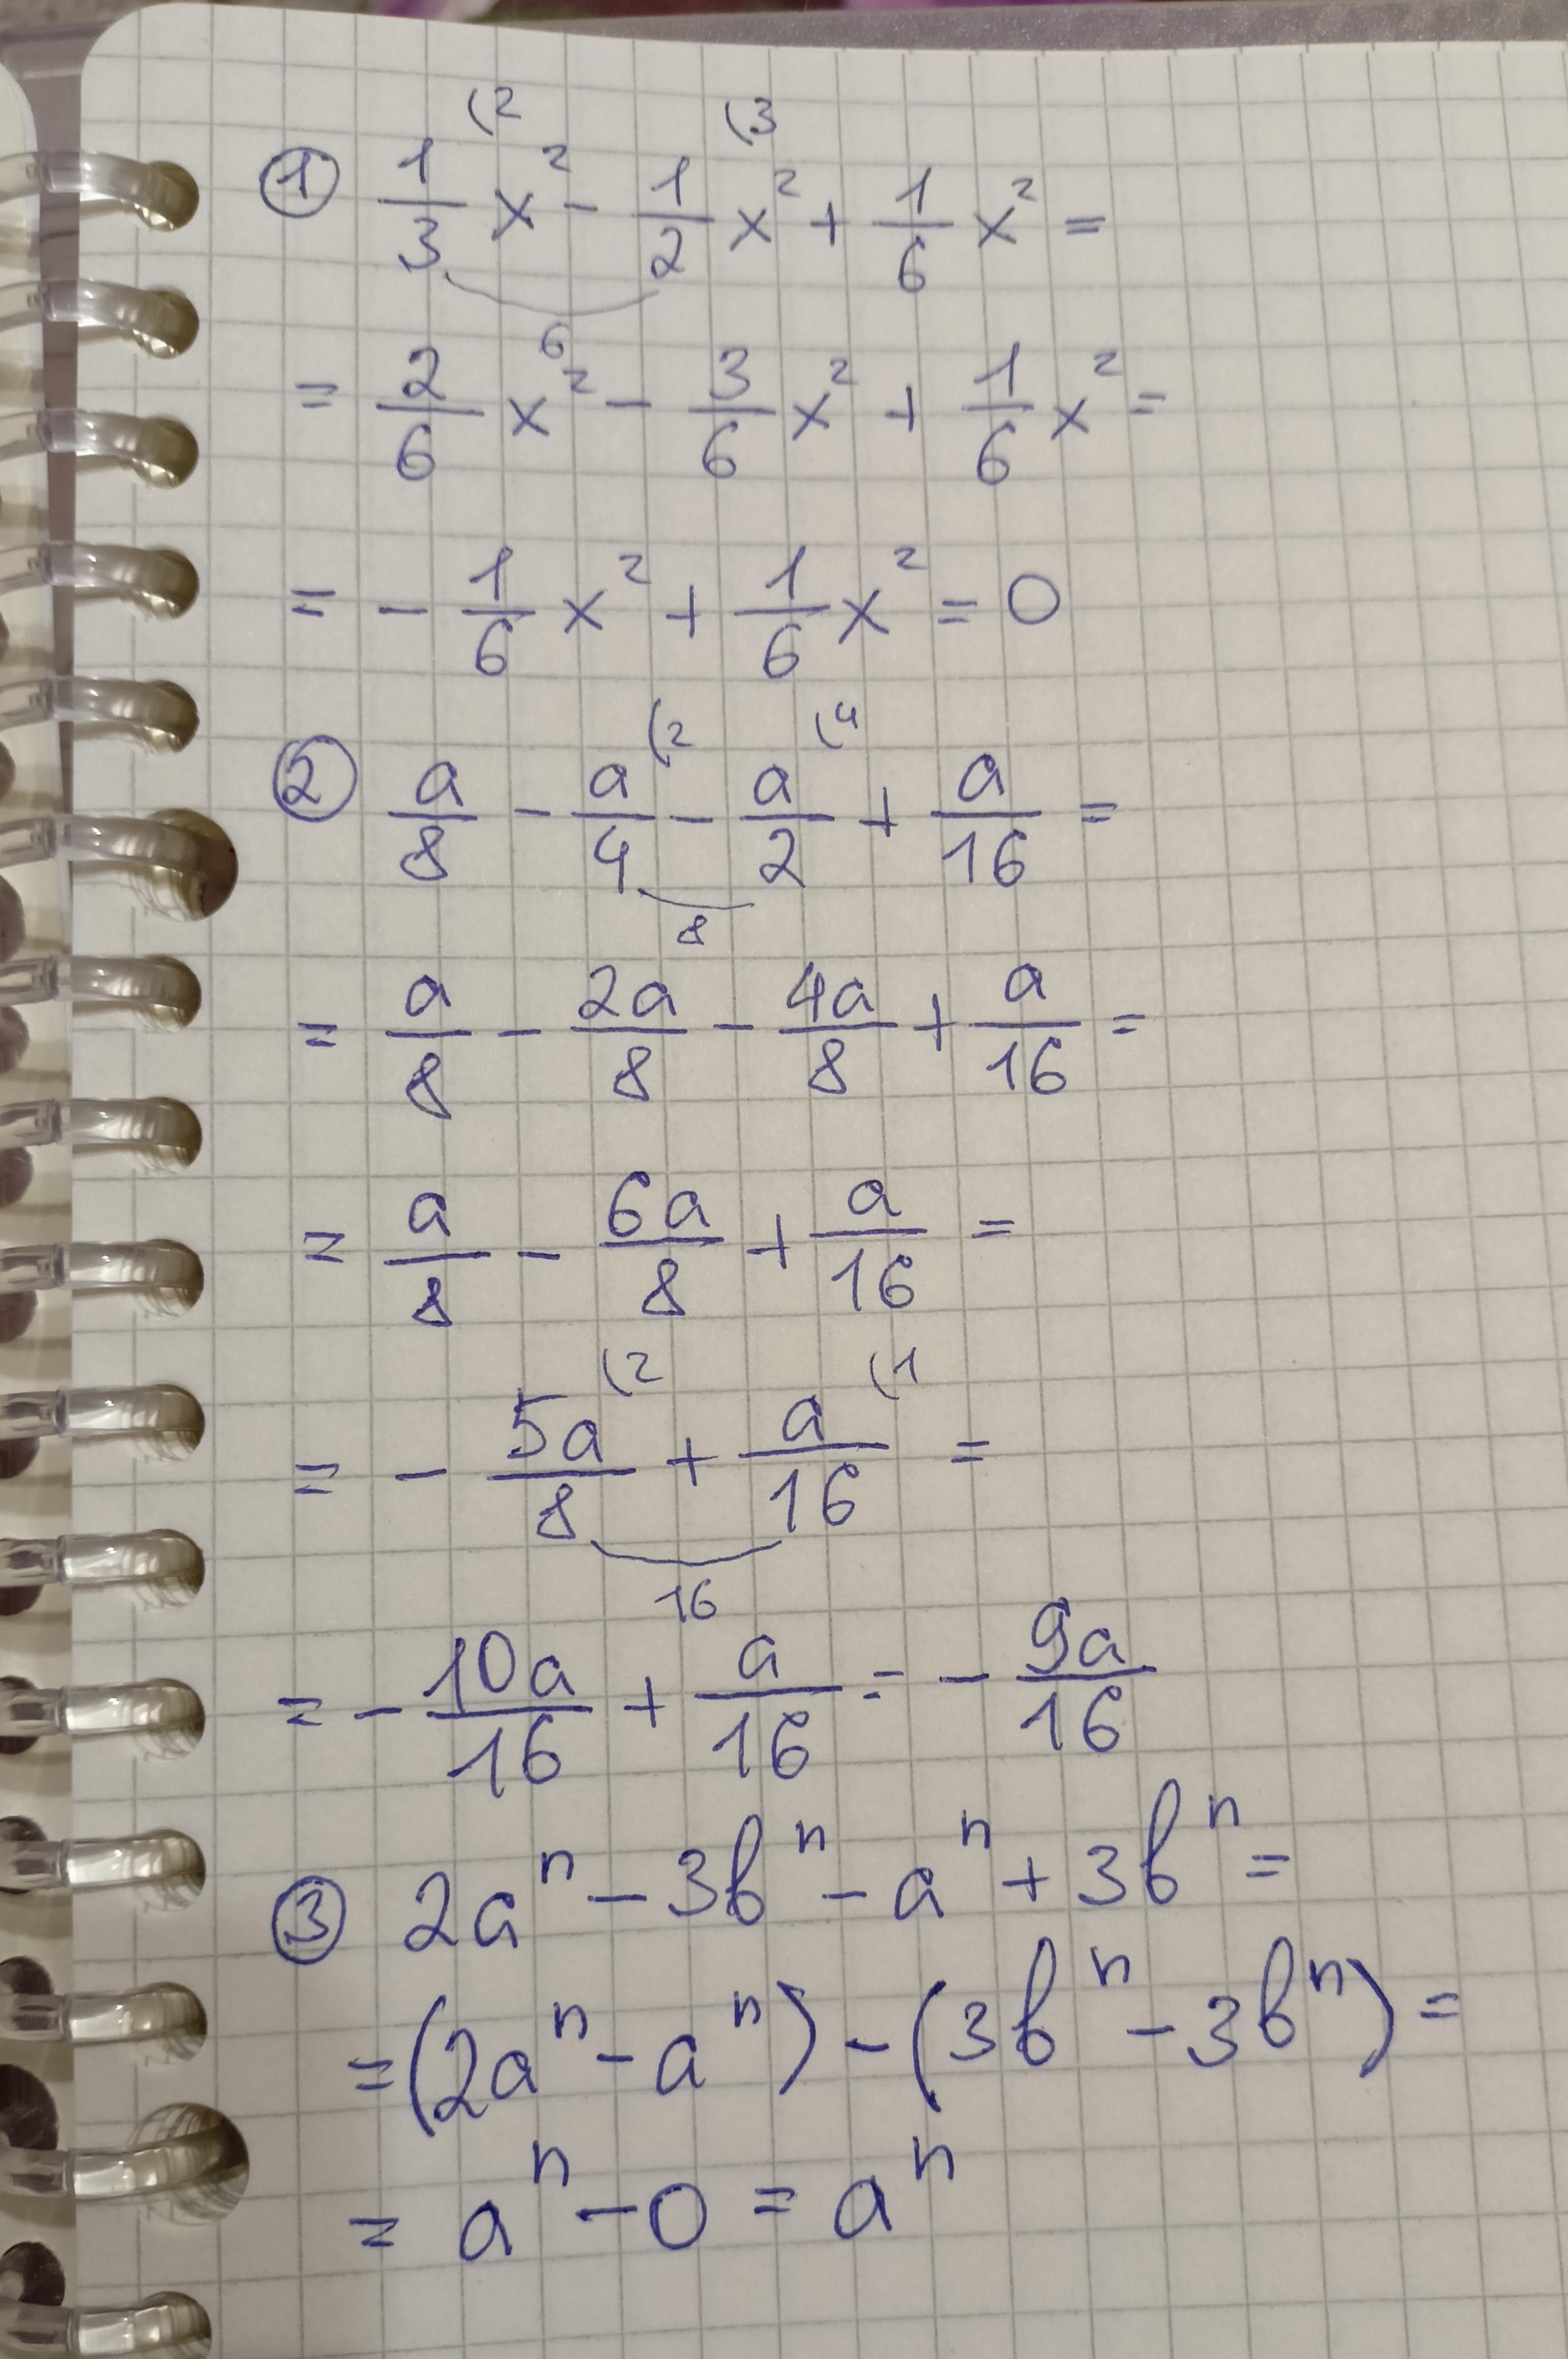 (2 (3
① 1/3 x² - 1/2 x² + 1/6 x² =
6
= 2/6 x² - 3/6 x² + 1/6 x² =
= - 1/6 x² + 1/6 x² = 0
(2 (4
② a/8 - a/4 - a/2 + a/16 =
8
= a/8 - 2a/8 - 4a/8 + a/16 =
= a/8 - 6a/8 + a/16 =
(2 (1
= - 5a/8 + a/16 =
16
= - 10a/16 + a/16 = - 9a/16
③ 2aⁿ - 3bⁿ - aⁿ + 3bⁿ =
= (2aⁿ - aⁿ) - (3bⁿ - 3bⁿ) =
= aⁿ - 0 = aⁿ